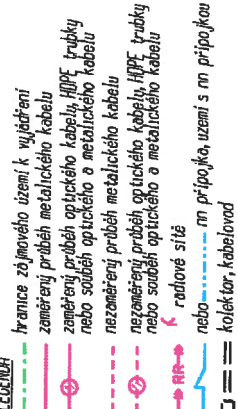 LEGENDA
hranice zájmového území k vyjádření
zaměřený průběh metalického kabelu
zaměřený průběh optického kabelu, HDPE trubky
nebo souběh optického a metalického kabelu
nezaměřený průběh metalického kabelu
nezaměřený průběh optického kabelu, HDPE trubky
nebo souběh optického a metalického kabelu
RR radiové sítě
nebo nn přípojka, uzemi s nn přípojkou
kolektor, kabelovod